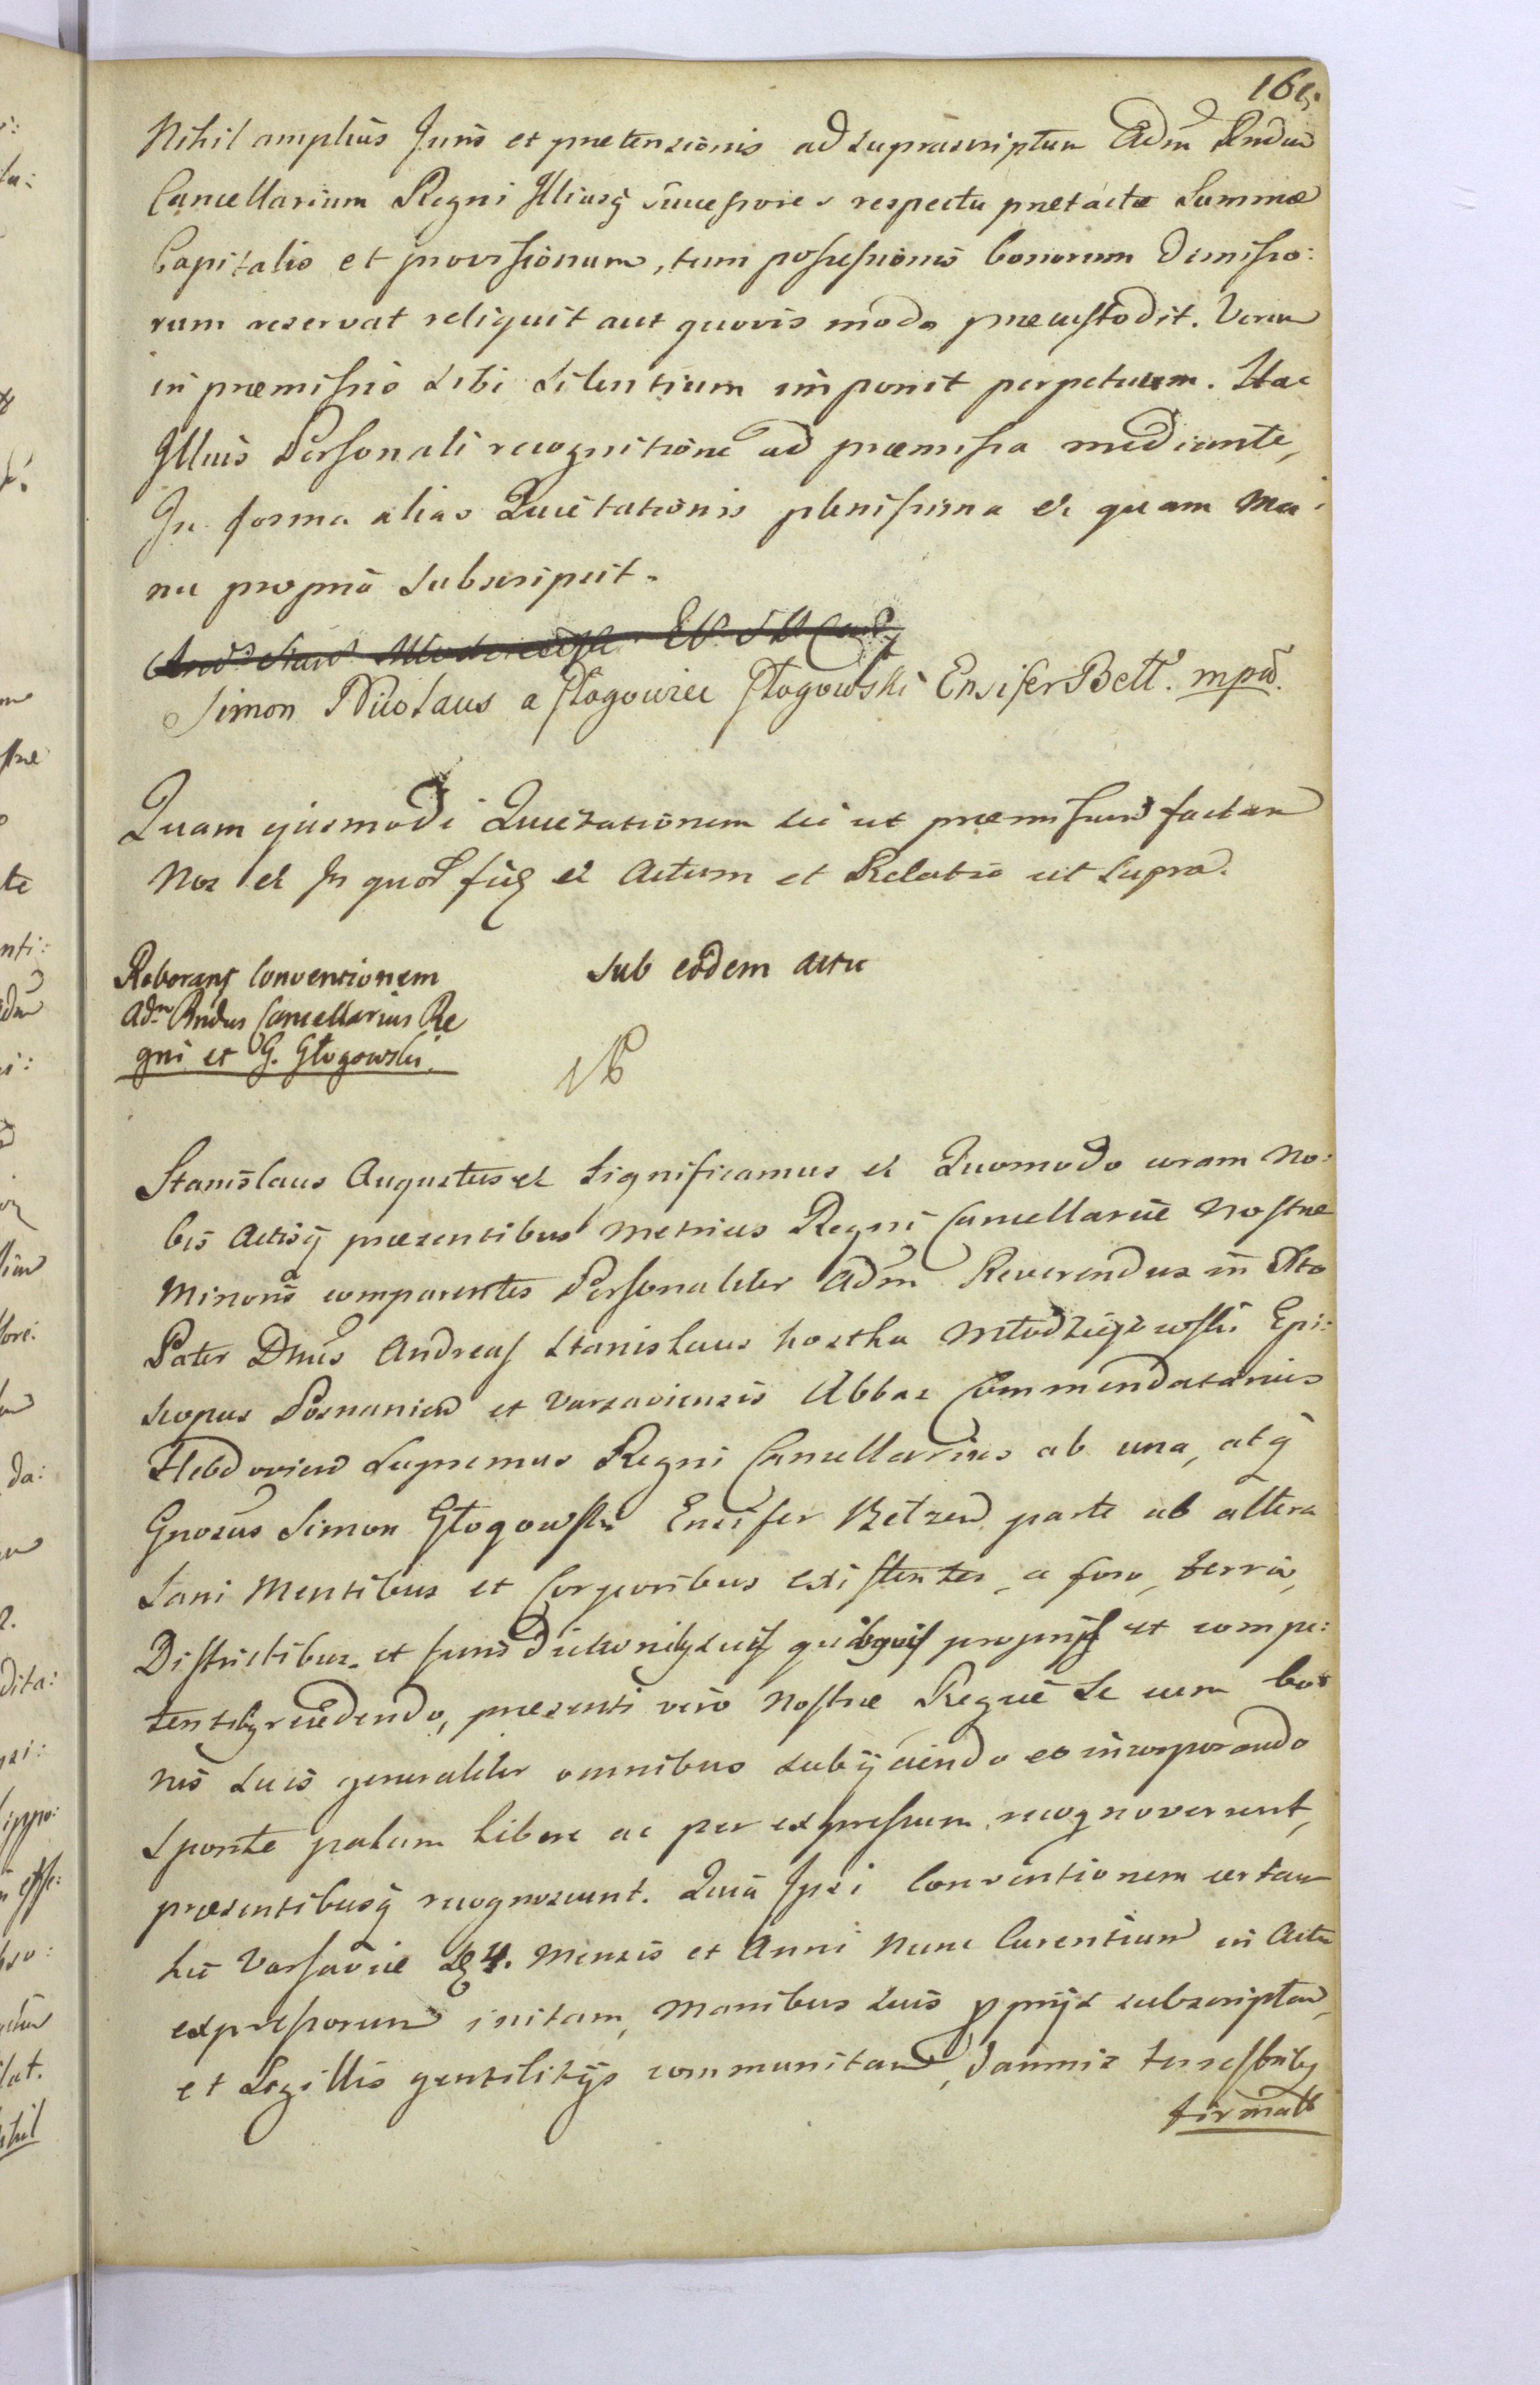 Nihil amplius Juris et praetensionis ad suprascriptum Adm Rndum
Cancellarium Regni Illiusq̃ successores respectu praetactae Summae
Capitalis et provisionum, tum possessionis bonorum dimisso:
rum reservat reliquit aut quovis modo praecustodit. Verum
in praemissis sibi silentium imponit perpetuum. Hac
Illius Personali recognitione ad praemissa mediante,
In forma alias Quietationis plenissima et quam Ma:
nu propria subscripsit.
Simon Nicolaus a Głogowiec Głogowski Ensifer Betts. mpa.
Quam ejusmodi Quietationem sic ut praemissum factam
Nos et In quor̃ fid et Actum et Relatio ut supra.
Roborans Conventionem
Adm Rndus Cancellarius Re
gni et G. Głogowski.
sub eodem actu
Stanislaus Augustus et Significamus et Quomodo coram No:
bis Actisq̃ praesentibus Metrices Regni Cancellariae Nostrae
Minoris comparentes Personaliter Adm Reverendus in Xto
Pater Dnus Andreas Stanislaus Kostka Młodziejowski Epi:
scopus Posnanien et Varsaviensis Abbas Commendatarius
Hebdovien Supremus Regni Cancellarius ab una, atq̃
Gnosus Simon Głogowski Ensifer Betzen parte ab altera
Sani Mentibus et Corporibus existentes, a foro, terris,
Districtibus et Jurisdictionibq suis quibqvis proprijs et compe:
tentibq recedendo, praesenti vero Nostrae Regiae Se cum bo:
nis suis generaliter omnibus subijciendo et incorporando
Sponte palam libere ac per expressum recognoverunt,
praesentibusq̃ recognoscunt. Quia Ipsi Conventionem certam
hic Varsaviae 4. Mensis et Anni Nunc Curentium in Actu
expressorum initam, Manibus suis pprijs subscriptam,
et Sigillis gentilitijs communitam, Damnis terrestribq
firmatt